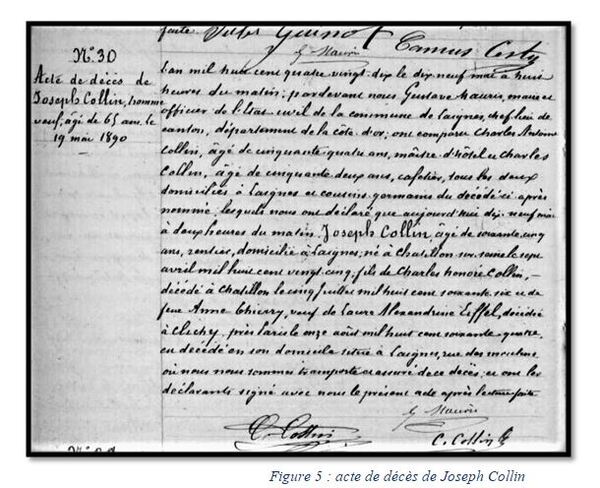 faite. Jules Guenot Camus
G. Mauris
N° 30
Acte de décès de
Joseph Collin, homme
veuf, âgé de 65 ans le
19 mai 1890
L'an mil huit cent quatre vingt-dix le dix neuf mai à huit
heures du matin; pardevant nous Gustave Mauris, maire et
officier de l'état civil de la commune de Laignes, chef lieu de
canton, département de la Côte-d'or; ont comparu Charles Antoine
Collin, âgé de cinquante quatre ans, maître d'hôtel et Charles
Collin, âgé de cinquante deux ans, cafetier, tous les deux
domiciliés à Laignes et cousins germains du décédé ci après
nommé, lesquels nous ont déclaré que aujourd'hui dix-neuf mai
à deux heures du matin Joseph Collin, âgé de soixante cinq
ans, rentier, domicilié à Laignes; né à Chatillon sur seine le sept
avril mil huit cent vingt-cinq; fils de Charles honoré Collin, —
décédé à Chatillon le cinq juillet mil huit cent soixante six et de
feue Anne Thierry, veuf de Laure Alexandrine Eiffel, décédée
à Clichy, près Paris le onze août mil huit cent soixante quatre,
est décédé en son domicile situé à Laignes, rue des moulins
où nous nous sommes transporté et assuré de ce décès; et ont les
déclarants signé avec nous le présent acte après lecture faite
G. Mauris
C. Collin
C. Collin
Figure 5 : acte de décès de Joseph Collin